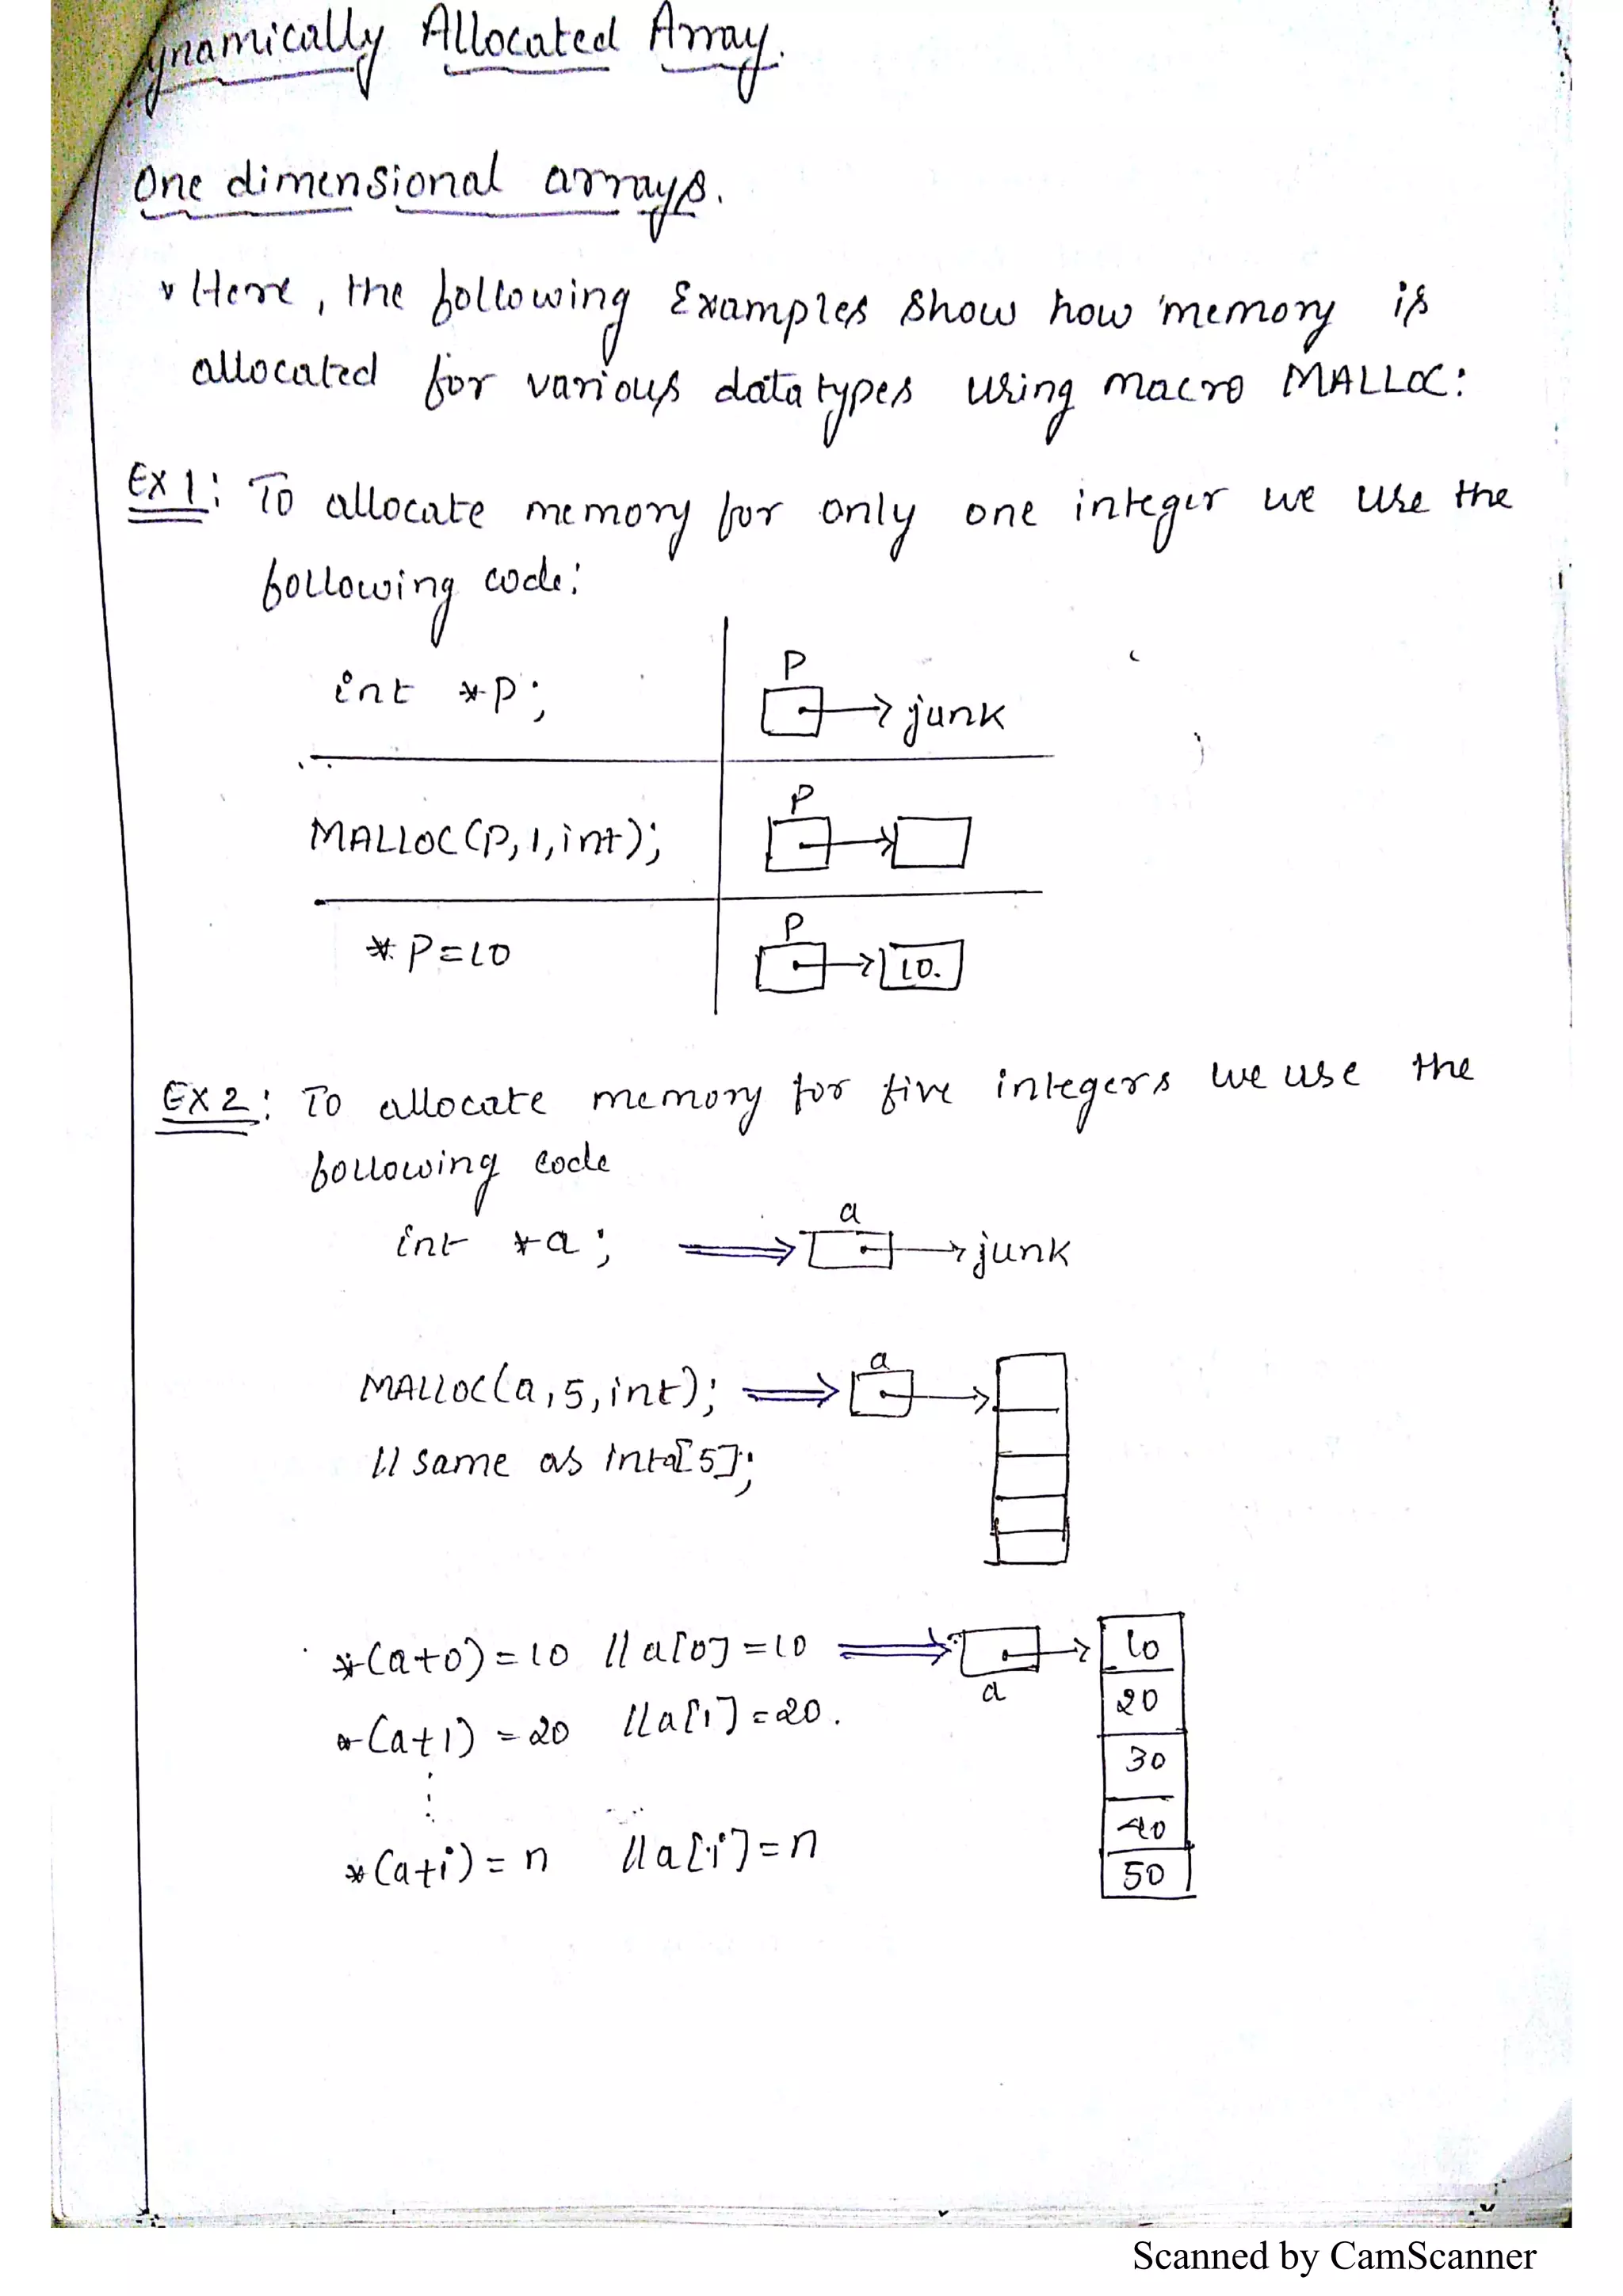 ynamically Allocated Array.
One dimensional arrays.
Here, the following Examples show how memory is
allocated for various datatypes using macro MALLOC:
EX 1: To allocate memory for only one integer we use the
following code:
int *p; P junk
MALLOC(P, 1, int); P
*P=10 P 10.
EX 2: To allocate memory for five integers we use the
following code
int *a; a junk
MALLOC(a, 5, int); a
// same as int a[5];
*(a+0) = 10 // a[0] = 10 a 10
*(a+1) = 20 // a[1] = 20. 20
30
40
*(a+i) = n // a[i] = n 50
Scanned by CamScanner